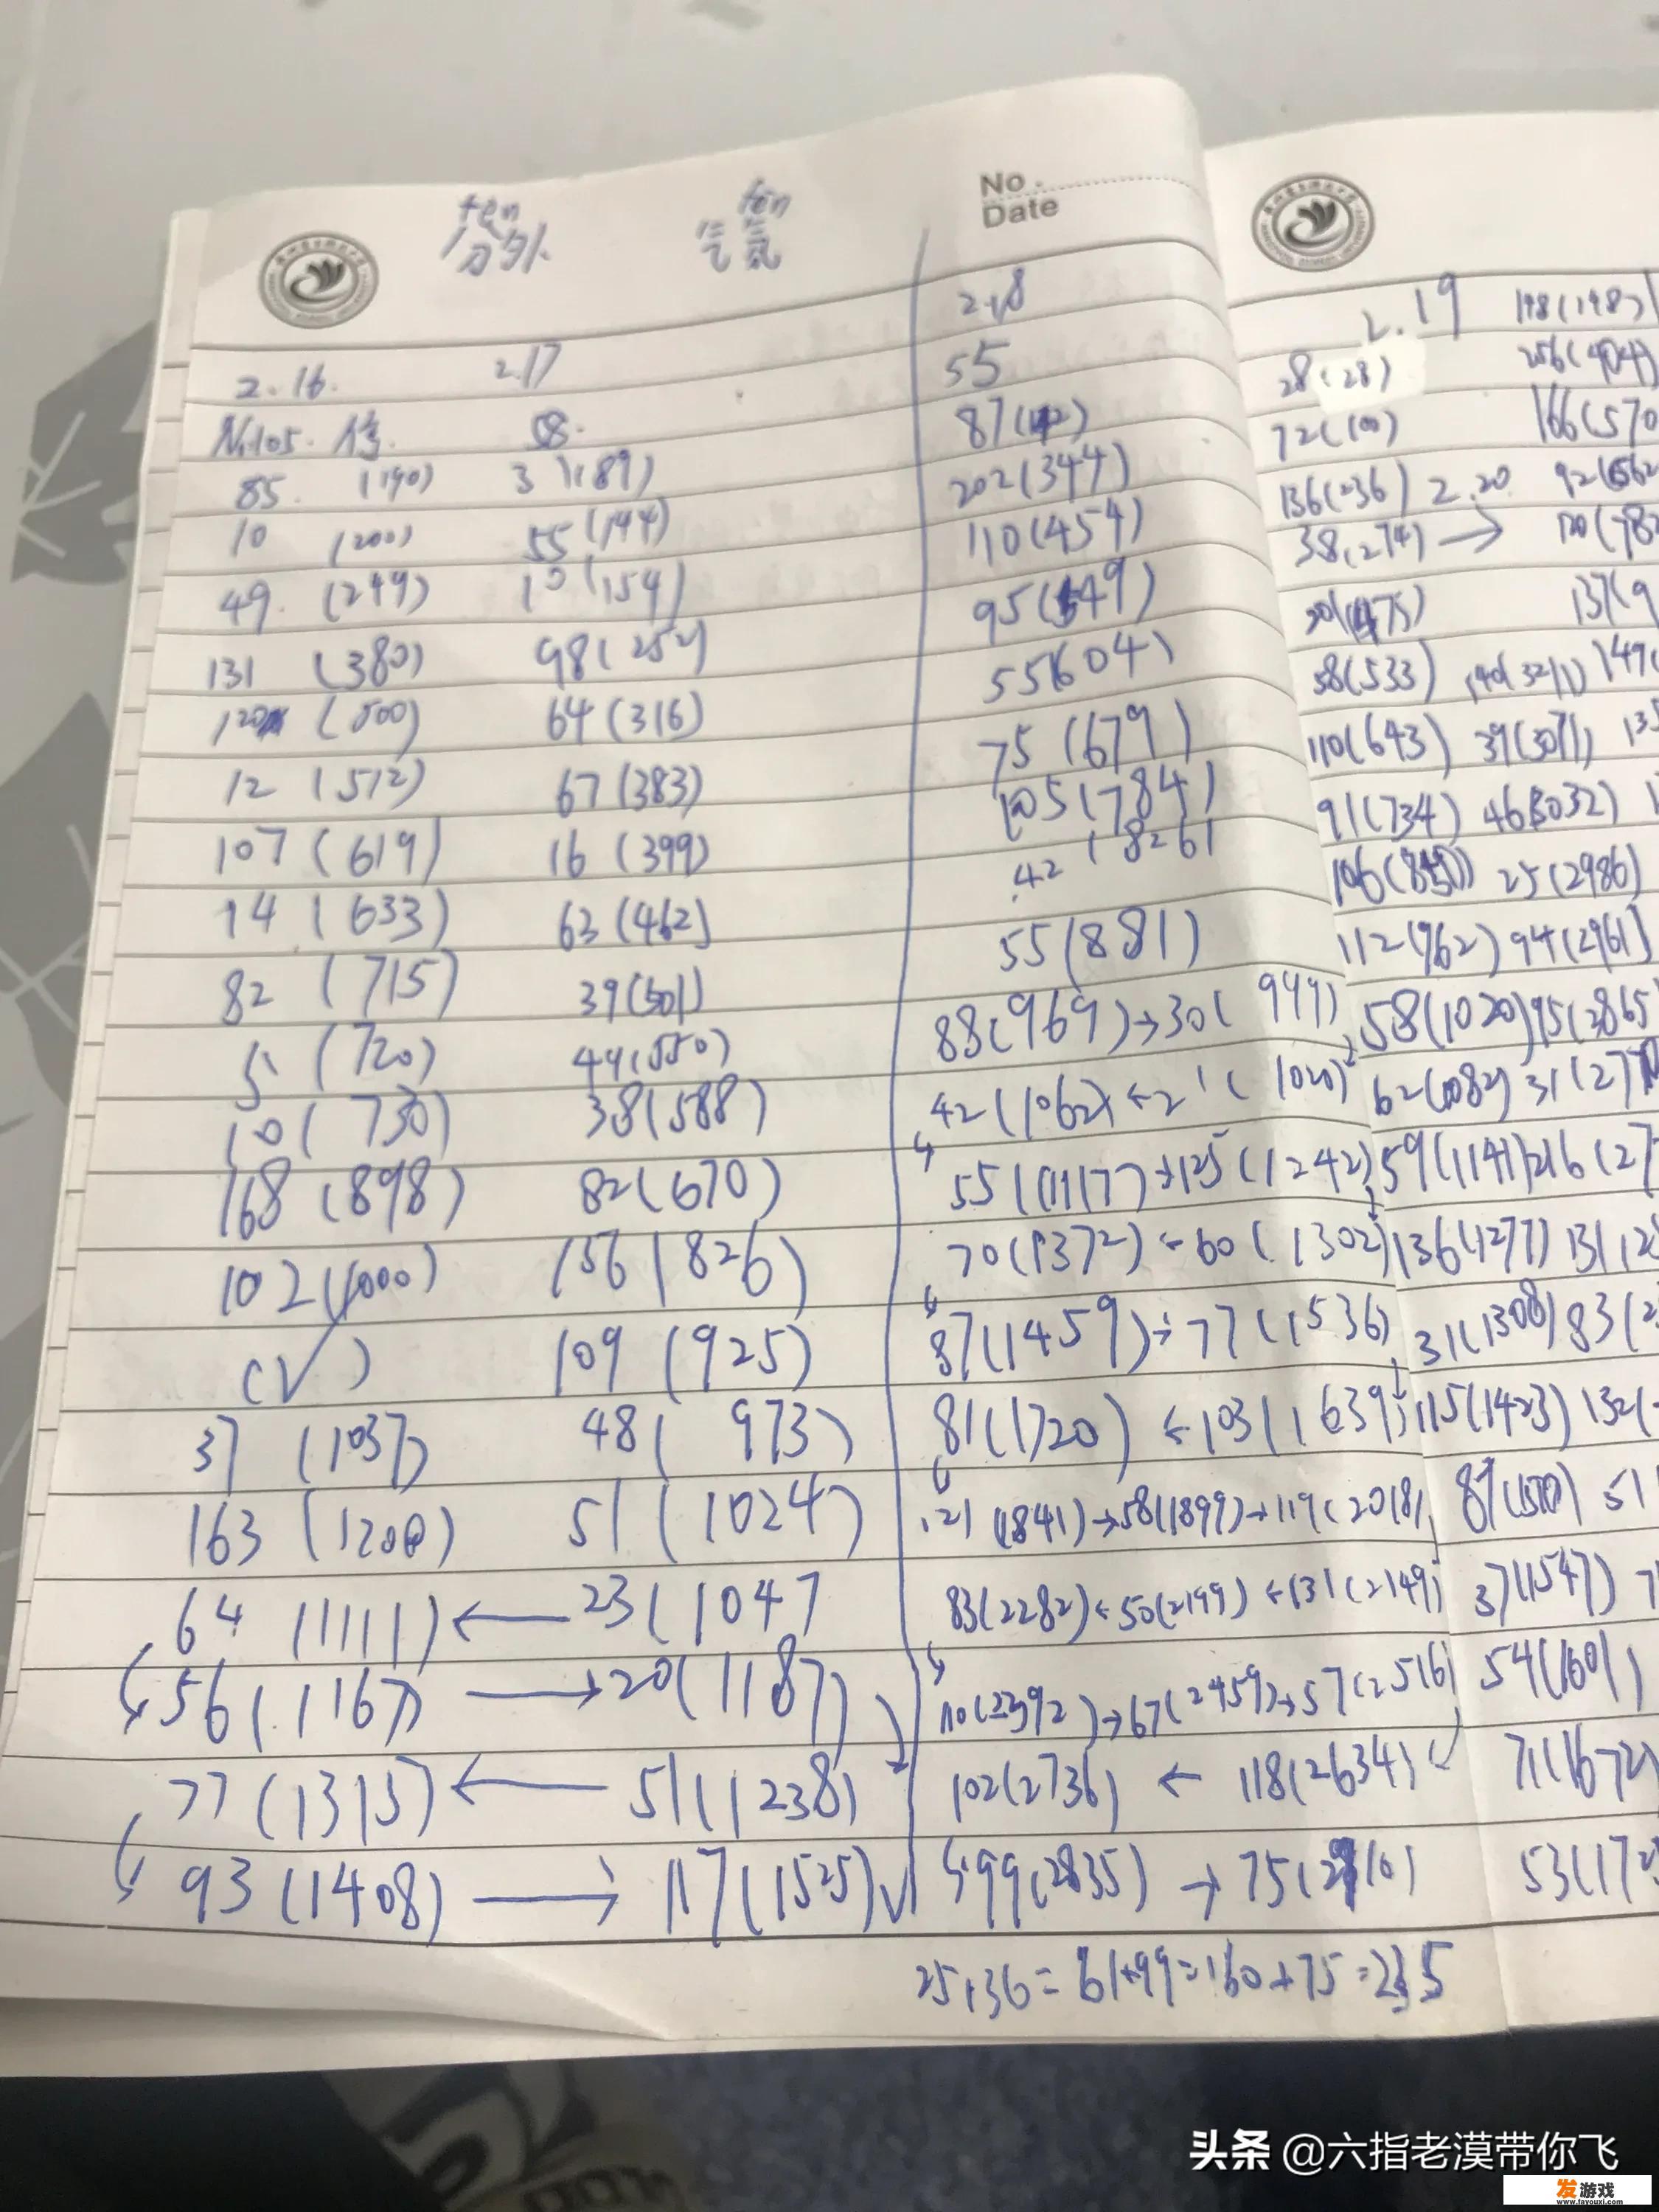 ten
ten
No.
Date
2.16.
2.17
2.18
2.19
198(198)
55
28(28)
256(404)
No.105.
58.
87(142)
72(100)
166(570
85. (190)
31(89)
202(344)
136(236) 2.20
10 (200)
55(144)
110(454)
38(274) →
49. (249)
10(154)
95(549)
137(9
131 (380)
98(252)
55(604)
58(533)
149(
120 (500)
64(316)
75(679)
110(643) 39(3071) 135
12 (512)
67(383)
105(784)
91(734) 46(3032)
107(619)
16(399)
42(826)
25(2986)
14(633)
63(462)
55(881)
112(962) 94(2961)
82(715)
39(501)
88(969)→30(999)
58(1020) 95(2865
5(720)
49(550)
42(1062)←21(1020)
62(1082) 31(277
10(730)
38(588)
55(1117)→125(1242)
59(1141) 216(27
168(898)
82(670)
70(1372)←60(1302)
136(1277) 131(2
102(1000)
156(826)
87(1459)→77(1536)
31(1308) 83(2
(√)
109(925)
81(1720)←103(1639)
115(1423) 132(
37(1037)
48(973)
121(1841)→58(1899)→119(2018)
87(1510) 51
163(1200)
51(1024)
83(2282)←50(2199)←131(2149)
37(1547) 7
64(1111)←23(1047
110(2392)→67(2459)→57(2516)
54(1601)
56(1167)→20(1187)
102(2736)←118(2634)
71(1672)
77(1315)←51(1238)
99(2835)→75(2910)
53(172
93(1408)→117(1525)√
25+36=61+99=160+75=235
头条 @六指老漠带你飞
发游戏
www.fayouxi.com